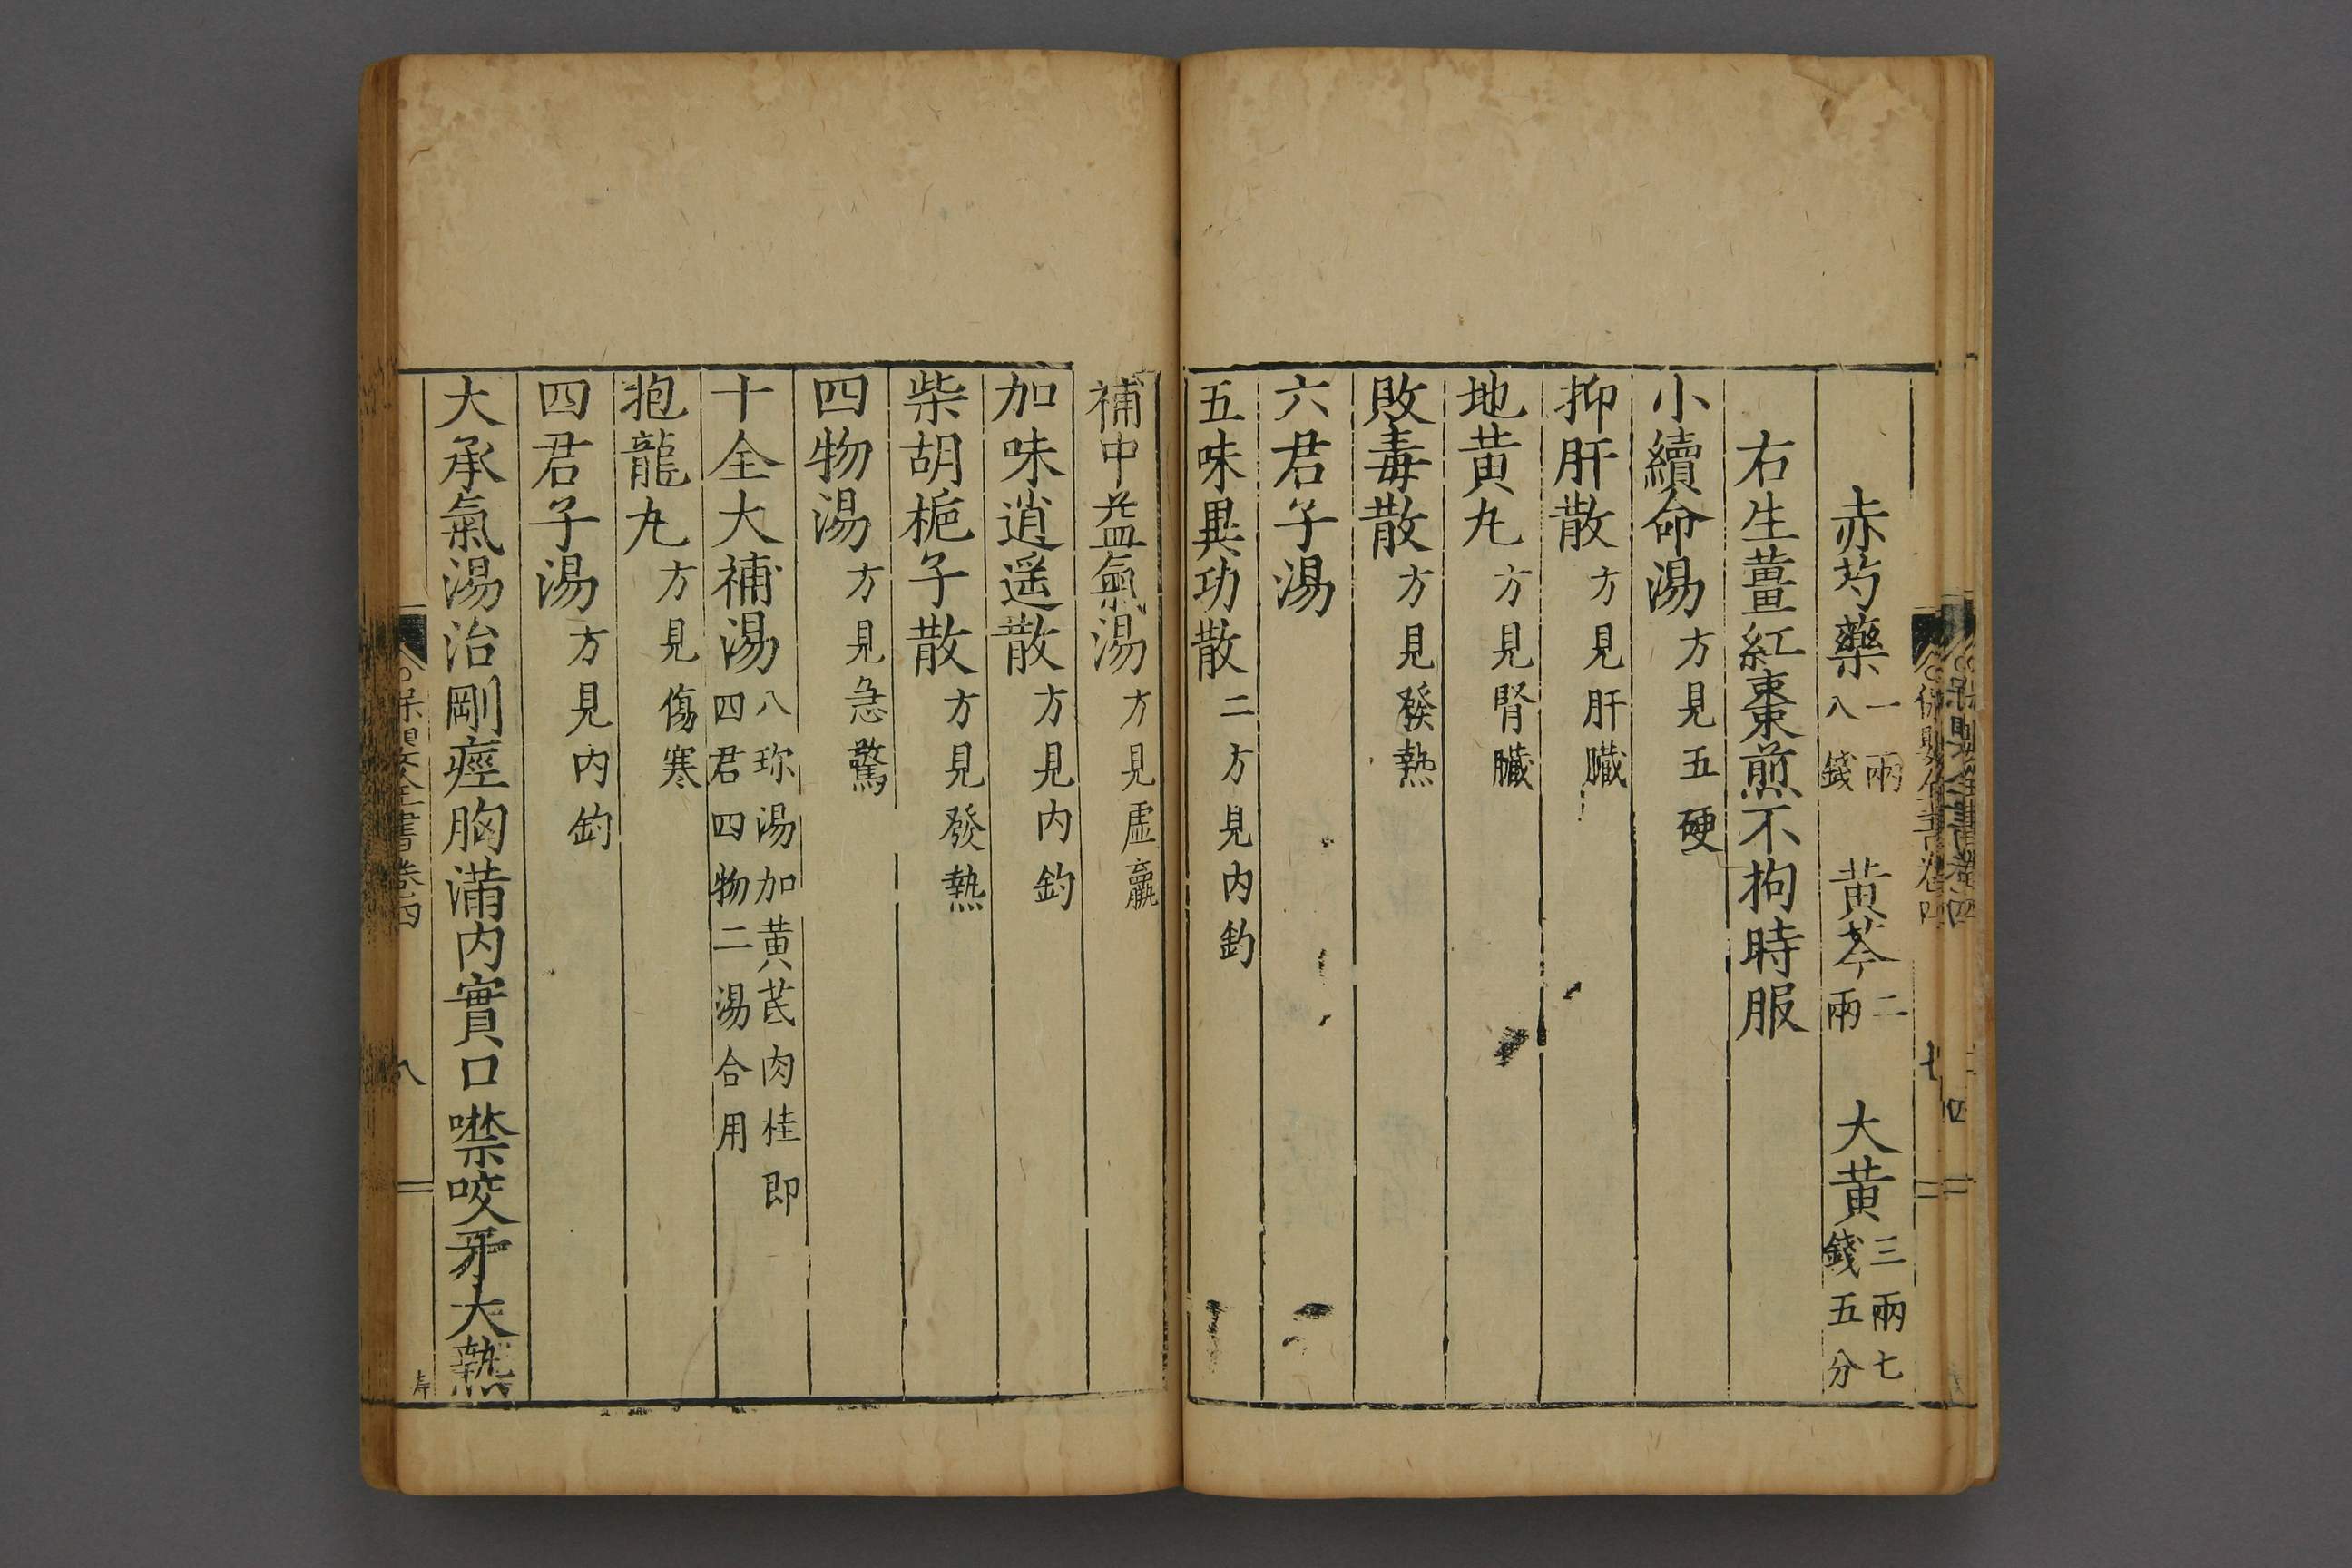 赤芍藥一兩八錢 黃芩二兩 大黃三兩七錢五分
右生薑紅棗煎不拘時服
小續命湯方見五硬
抑肝散方見肝臟
地黃丸方見腎臟
敗毒散方見發熱
六君子湯
五味異功散二方見內釣
補中益氣湯方見虛羸
加味逍遥散方見內釣
柴胡梔子散方見發熱
四物湯方見急驚
十全大補湯八珍湯加黃芪肉桂即四君四物二湯合用
抱龍丸方見傷寒
四君子湯方見內釣
大承氣湯治剛痙胸滿內實口噤咬牙大熱
保嬰全書卷四
八